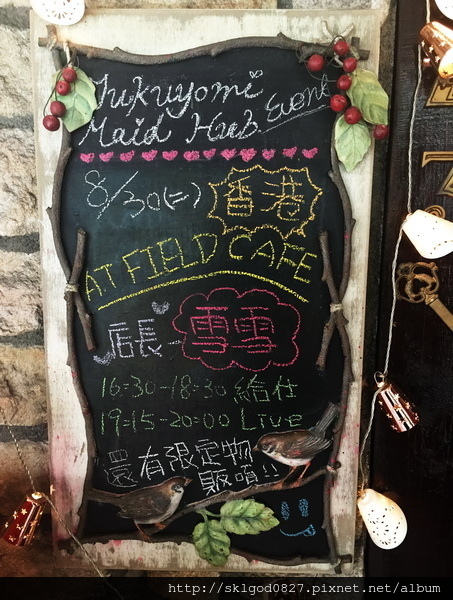 Tukuyomi
Maid Hub Event
8/30(二) 香港
A.T FIELD CAFE
店長-雪雪
16:30-18:30 給仕
19:15-20:00 Live
還有限定物
販唷!!
http://sklgod0827.pixnet.net/album